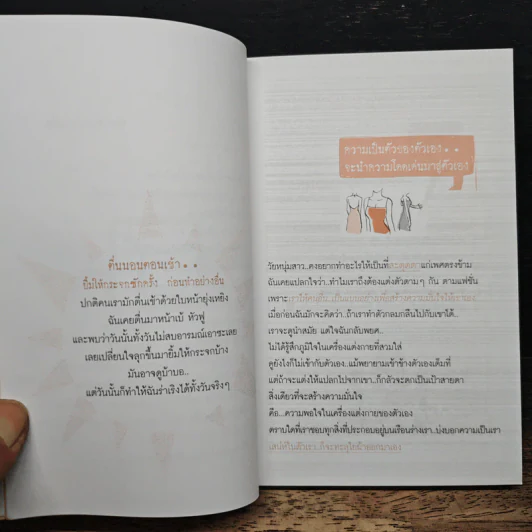 ตื่นนอนตอนเช้า..
ยิ้มให้กระจกซักครั้ง ก่อนทำอย่างอื่น
ปกติคนเรามักตื่นเช้าด้วยใบหน้ายุ่งเหยิง
ฉันเคยตื่นมาหน้าเบ้ หัวฟู
และพบว่าวันนั้นทั้งวันไม่สบอารมณ์เอาซะเลย
เลยเปลี่ยนใจลุกขึ้นมายิ้มให้กระจกบ้าง
มันอาจดูบ้าบอ..
แต่วันนั้นก็ทำให้ฉันร่าเริงได้ทั้งวันจริงๆ
ความเป็นตัวของตัวเอง..
จะนำความโดดเด่นมาสู่ตัวเอง
วัยหนุ่มสาว..คงอยากทำอะไรให้เป็นที่สะดุดตาแก่เพศตรงข้าม
ฉันเคยแปลกใจว่า..ทำไมเราถึงต้องแต่งตัวตามๆ กัน ตามแฟชั่น
เพราะ
เมื่อก่อนฉันมักจะคิดว่า..ถ้าเราทำตัวกลมกลืนไปกับเขาได้..
เราจะดูนำสมัย แต่ใจฉันกลับพยศ..
ไม่ได้รู้สึกภูมิใจในเครื่องแต่งกายที่สวมใส่
ดูยังไงก็ไม่เข้ากับตัวเอง..แม้พยายามเข้าข้างตัวเองเต็มที่
แต่ถ้าจะแต่งให้แปลกไปจากเขา..ก็กลัวจะตกเป็นเป้าสายตา
สิ่งเดียวที่จะสร้างความมั่นใจ
คือ...ความพอใจในเครื่องแต่งกายของตัวเอง
ตราบใดที่เราชอบทุกสิ่งที่ประกอบอยู่บนเรือนร่างเรา..บ่งบอกความเป็นเรา
เสน่ห์ในตัวเรา..ก็จะทะลุใยผ้าออกมาเอง